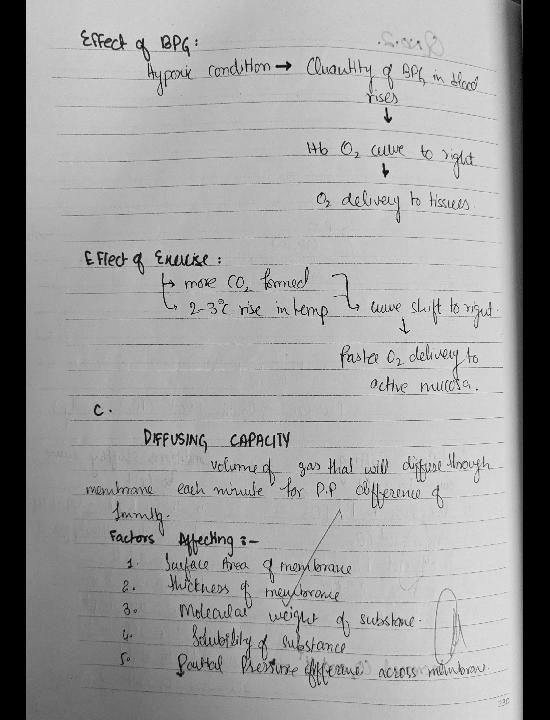 Effect of BPG:
Hypoxic condition → Quantity of BPG in blood
rises
↓
Hb O₂ curve to right
↓
O₂ delivery to tissues.
Effect of Exercise:
↦ more CO₂ formed
↳ 2-3°C rise in temp ↳ curve shift to right.
↓
Faster O₂ delivery to
active mucosa.
C.
DIFFUSING CAPACITY
volume of gas that will diffuse through
membrane each minute for P.P difference of
1mmHg.
Factors Affecting :-
1. Surface Area of membrane
2. thickness of membrane
3. Molecular weight of substane.
4. Solubility of substance
5. Partial Pressure difference across membrane.